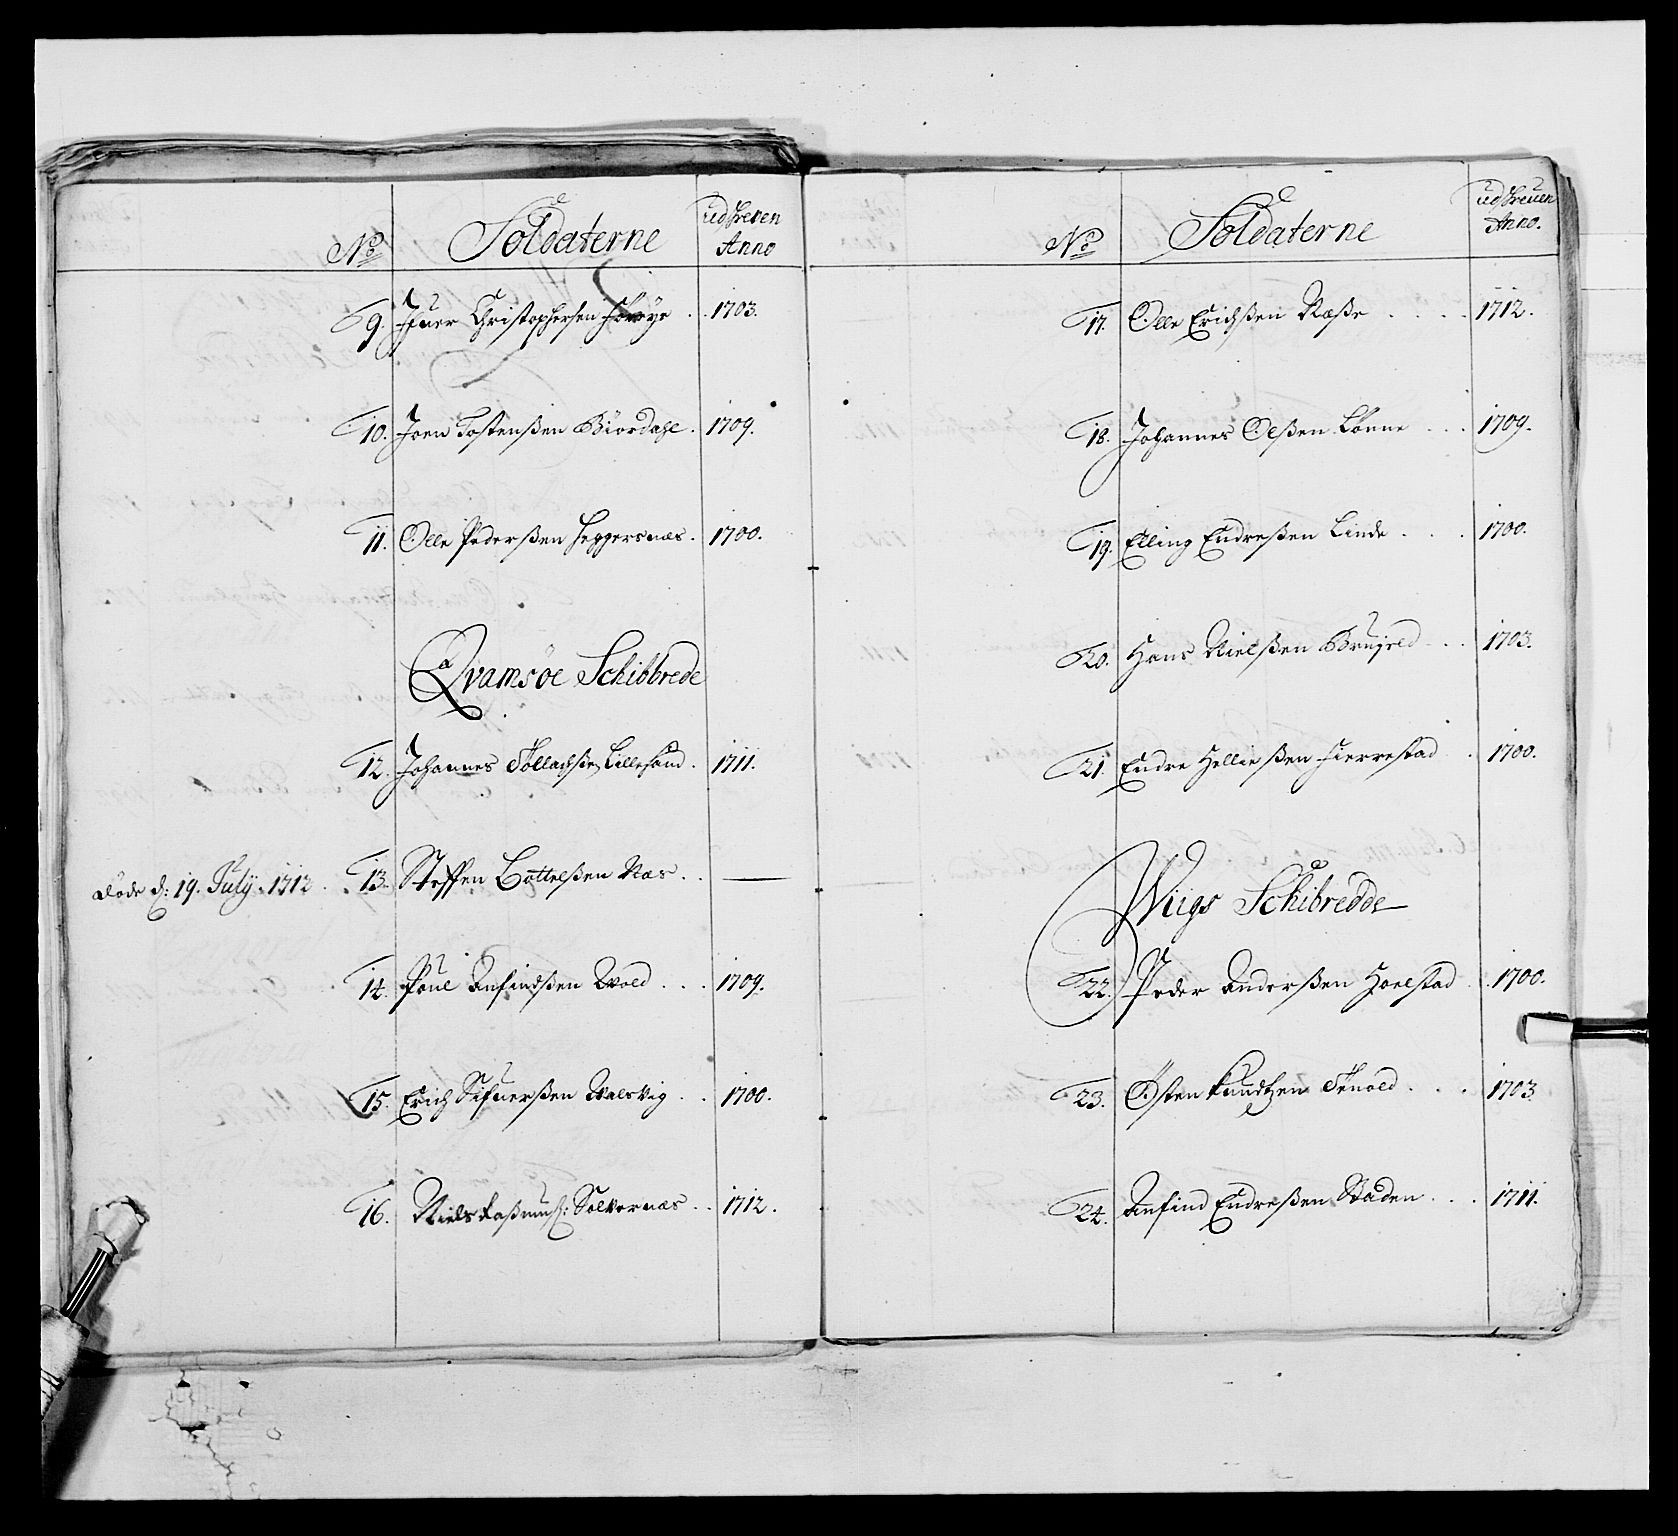 No Soldaterne udskreven Anno
9. Ifuer Christophersen 1703.
10. Joen Tostenßen Biordahl. 1709.
11. Olle Pederßen Heggernæs. 1700.
Qvamsøe Schibbrede
12. Johannes Lillesund. 1711.
døde d: 19. July. 1712. 13. Steffen Bottelßen Næs.
14. Poul Anfindßen Wold 1709.
15. Erich Sifuerßen Valsvig 1700.
16. Niels Raßmus: Solvornæs 1712.
No Soldaterne udskreuen Anno.
17. Olle Erichßen Næße 1712.
18. Johannes Olßen Lønne 1709.
19. Elling Endreßen Linde 1700.
20. Hans Nielßen 1703.
21. Endre Helließen Fierrestad 1700.
Wiigs Schibredde
22. Peder Anderßen Hoelstad 1700.
23. Østen Knudtzen Tenold 1703
24. Anfind Endreßen Staden 1711.